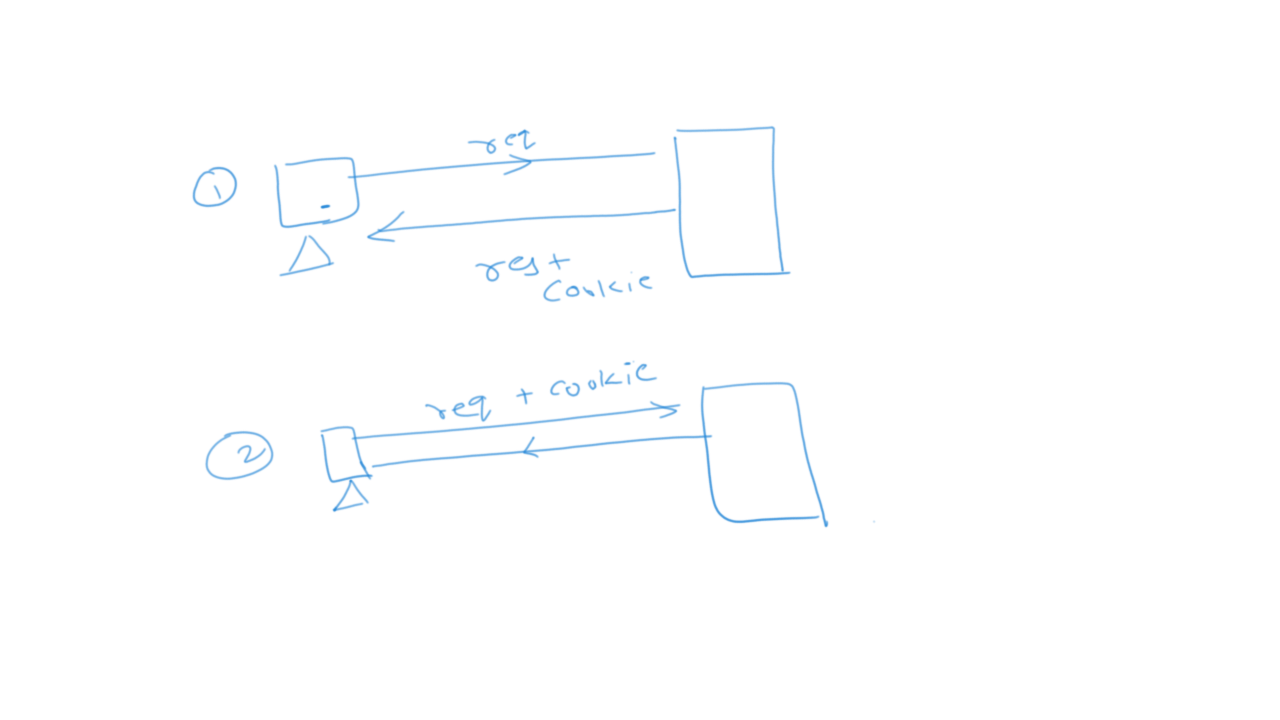 ①
req
res +
cookie
②
req + cookie